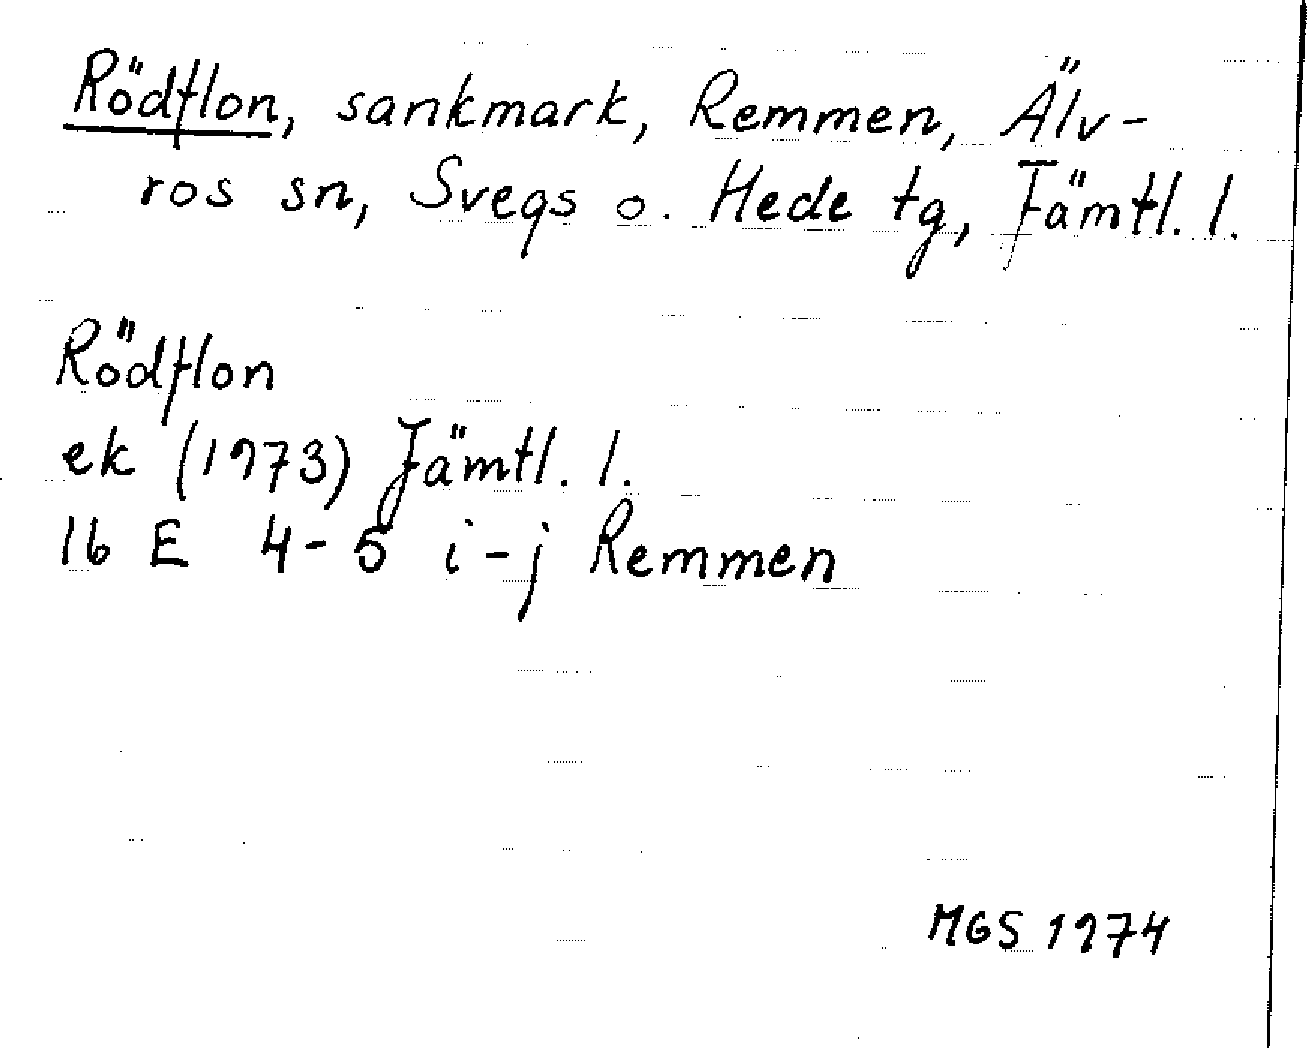 Rödflon, sankmark, Remmen, Älv-
ros sn, Svegs o. Hede tg, Jämtl. l.
Rödflon
ek (1973) Jämtl. l.
16 E 4-5 i-j Remmen
MGS 1974